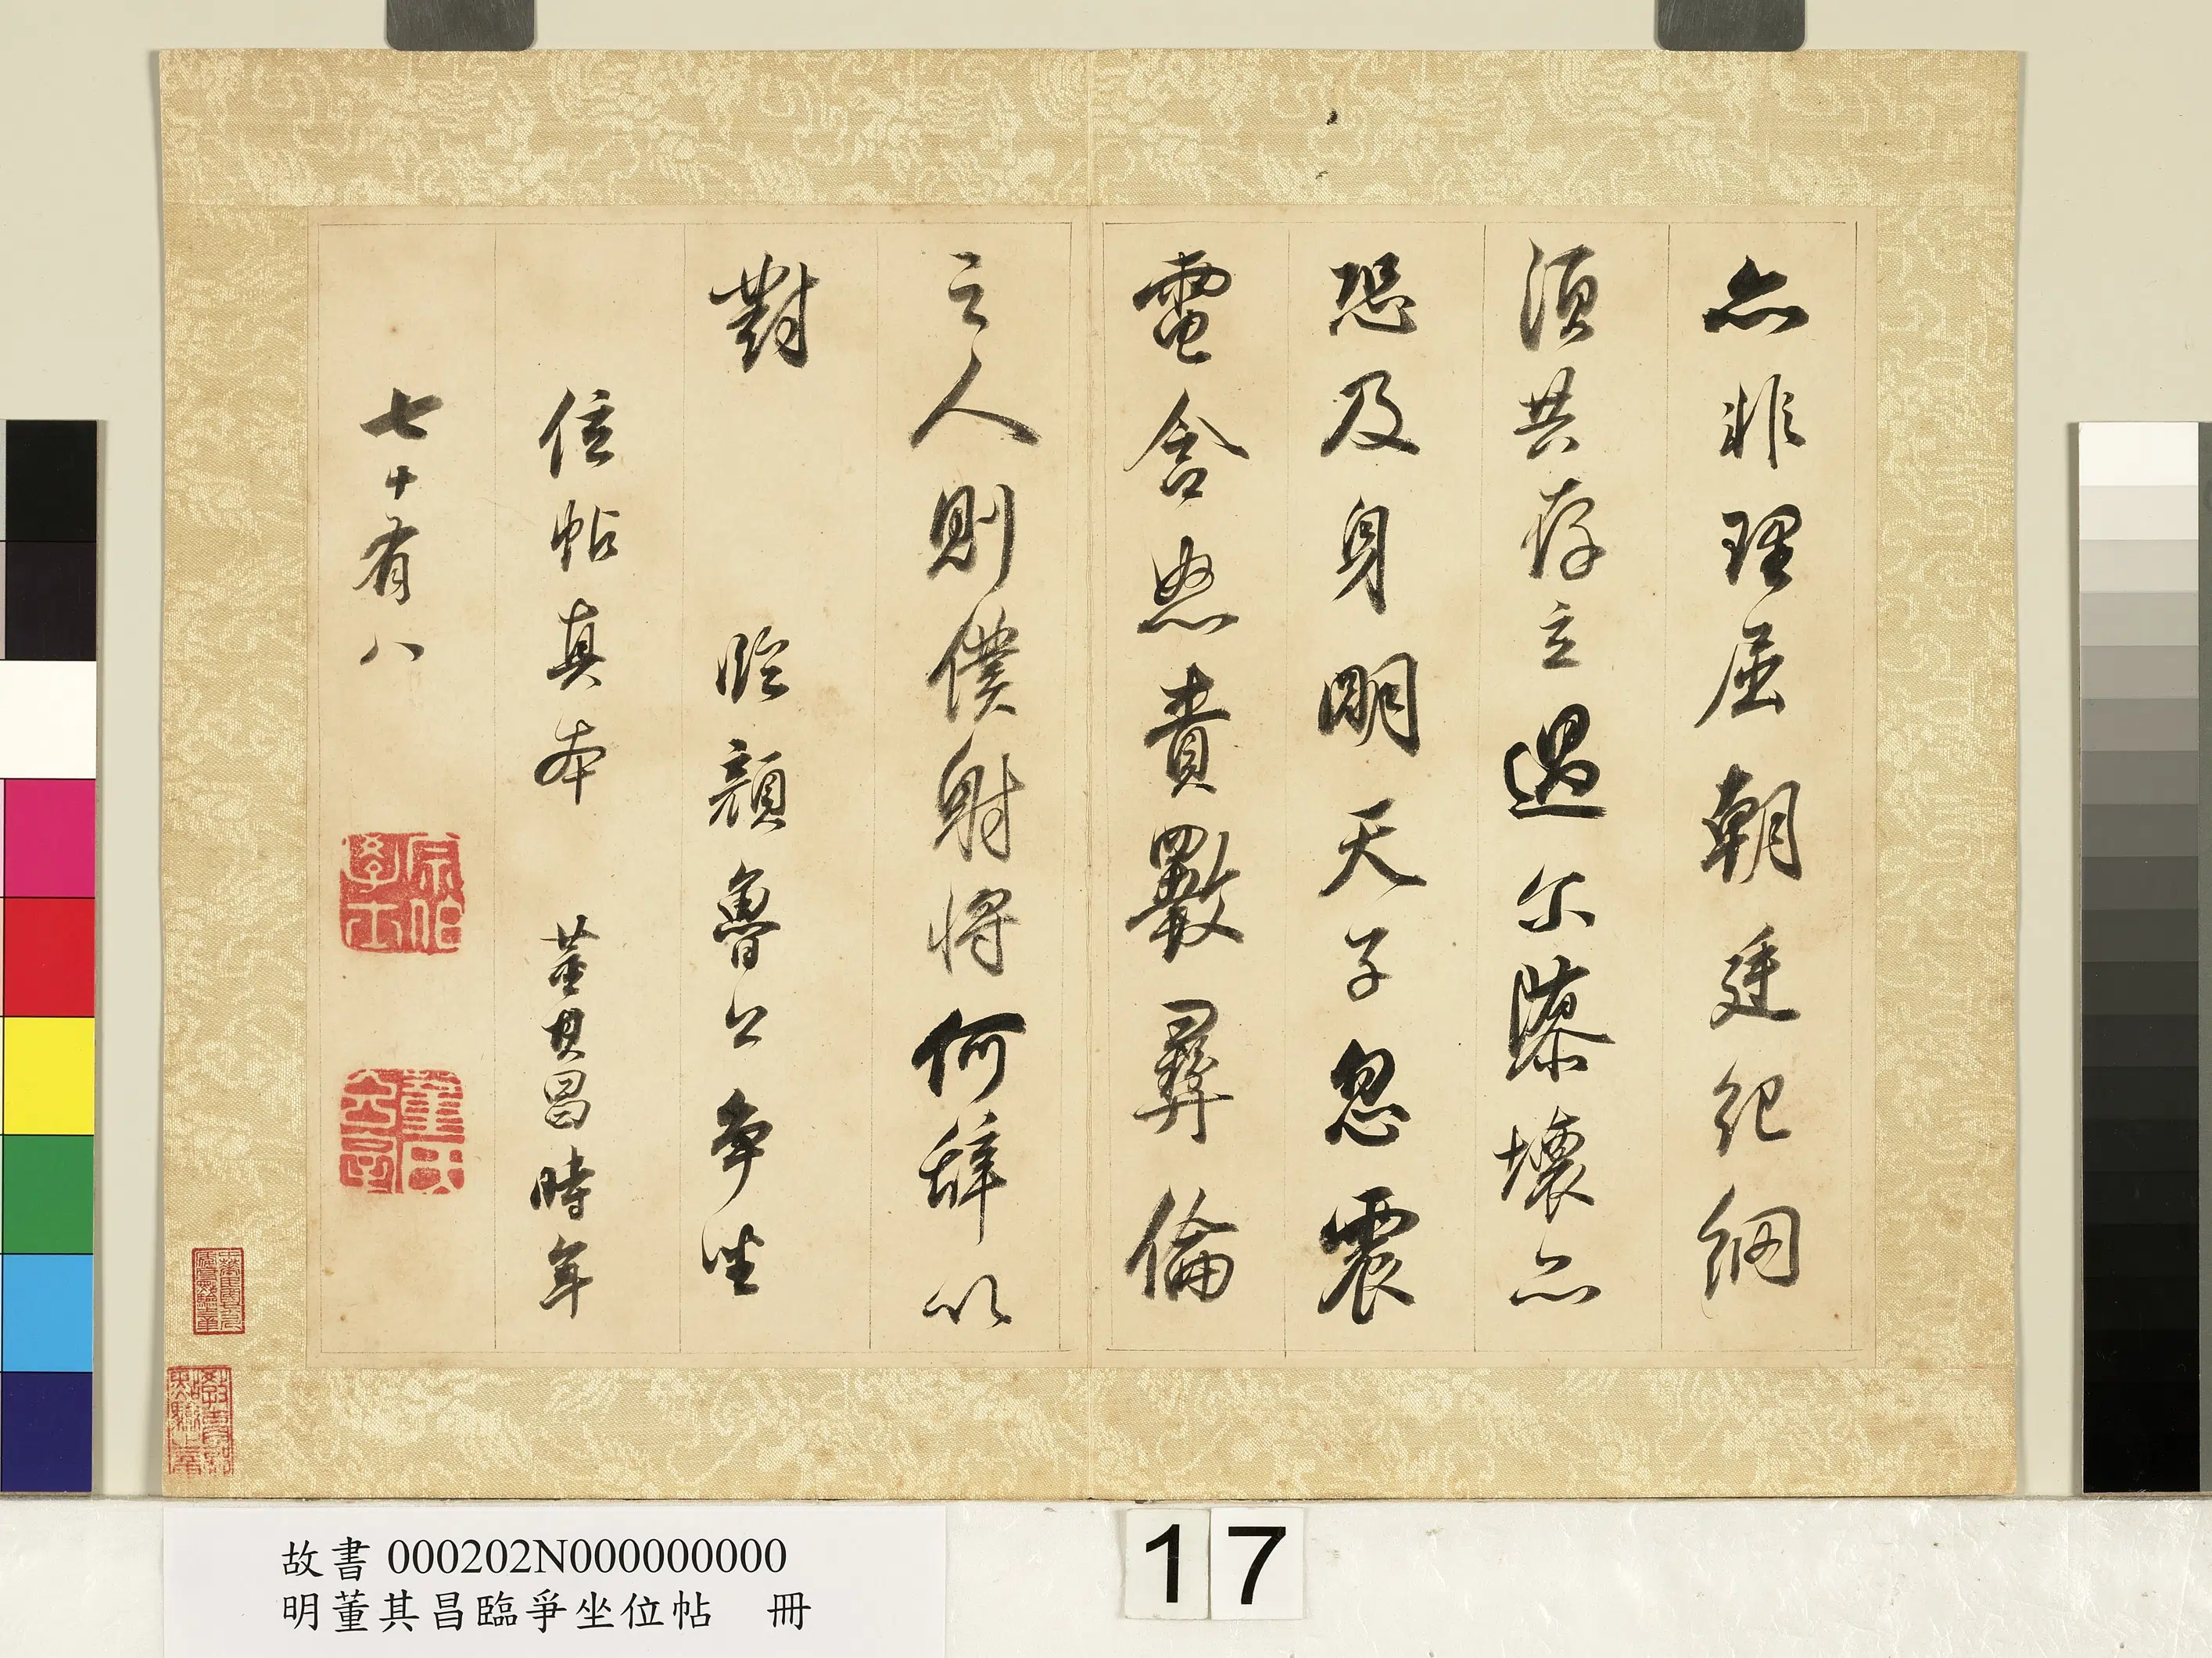 亦非理屈朝廷紀綱
須共存立過尔隳壞亦
恐及身明天子忽震
電含怒責斁彝倫
之人則僕射將何辭以
對
臨顏魯公爭坐
位帖真本 董其昌時年
七十有八
宗伯學士
董氏玄宰
故書 000202N000000000
明董其昌臨爭坐位帖 冊
17